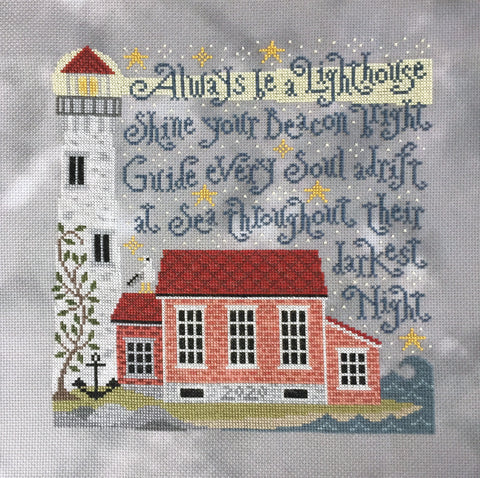 Always be a Lighthouse
Shine your Beacon bright
Guide every Soul adrift
at Sea throughout their
darkest
Night
2020